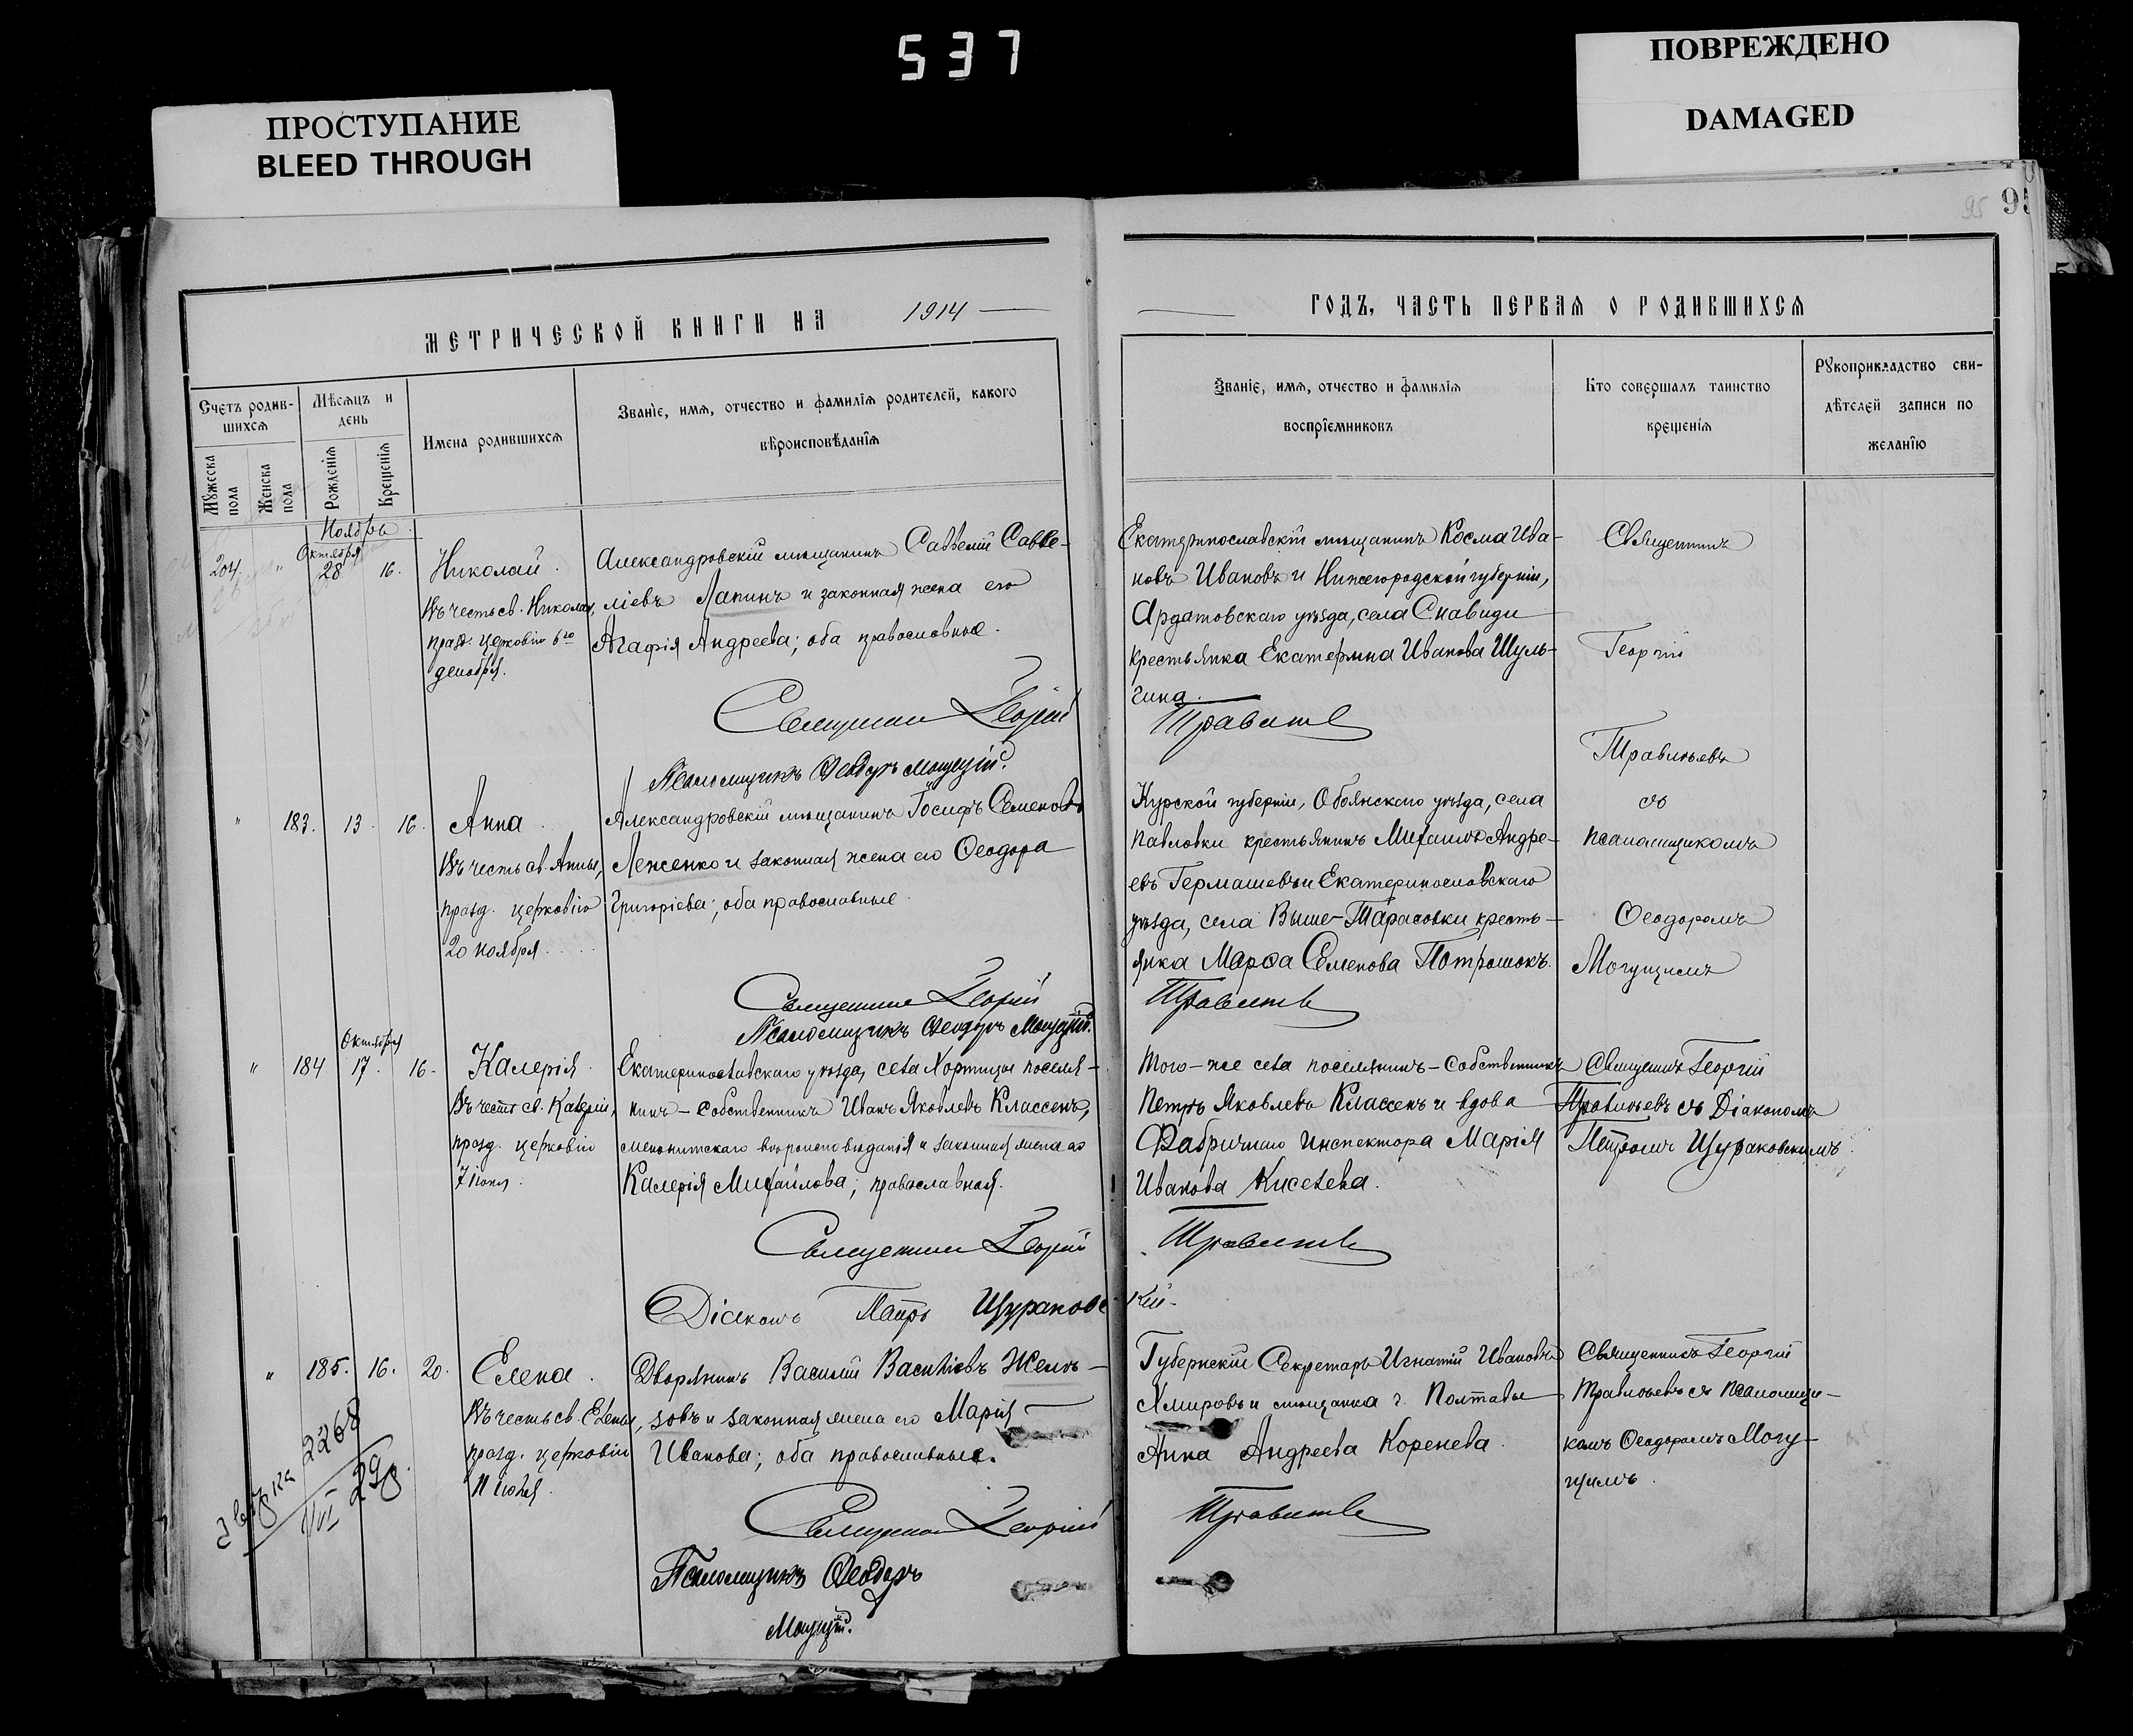 537
ПРОСТУПАНИЕ
BLEED THROUGH
ПОВРЕЖДЕНО
DAMAGED
95 95
МЕТРИЧЕСКОЙ КНИГИ НА 1914
ГОДЪ, ЧАСТЬ ПЕРВАЯ О РОДИВШИХСЯ
Счетъ родив-
шихся
Мужеска пола
Женска пола
Мѣсяцъ и
день
Рожденія
Крещенія
Имена родившихся
Званіе, имя, отчество и фамилія родителей, какого
вѣроисповѣданія
Званіе, имя, отчество и фамилія
воспріемниковъ
Кто совершалъ таинство
крещенія
Рукоприкладство сви-
дѣтелей записи по
желанію
Ноябрь
Октября
204 " 28 16.
Николай.
Въ честь св. Николая,
празд. церковію 6го
декабря.
Александровскій мѣщанинъ Савелій Савве-
ліевъ Лапинъ и законная жена его
Агафія Андреева; оба православные.
Священникъ Георгій
Псаломщикъ Ѳеодоръ Могущій.
Екатеринославскій мѣщанинъ Косма Ива-
новъ Ивановъ и Нижегородской губерніи,
Ардатовскаго уѣзда, села
крестьянка Екатерина Иванова Шуль-
гина.
Травлѣевъ
Священникъ
Георгій
Травлѣевъ
съ
псаломщикомъ
Ѳеодоромъ
Могущимъ
" 183. 13. 16.
Анна.
Въ честь св. Анны,
празд. церковію
20 ноября.
Александровскій мѣщанинъ Іосифъ Семеновъ
Леженко и законная жена его Ѳеодора
Григоріева; оба православные.
Священникъ Георгій
Псаломщикъ Ѳеодоръ Могущій.
Курской губерніи, Обоянскаго уѣзда, села
Павловки крестьянинъ Михаилъ Андре-
евъ Гермашевъ и Екатеринославскаго
уѣзда, села Выше-Тарасовки кресть-
янка Марѳа Семенова
Травлѣевъ
Октября
" 184 17. 16.
Калерія.
Въ честь св. Калеріи,
празд. церковію
7 іюня.
Екатеринославскаго уѣзда, села Хортицы поселя-
нинъ-собственникъ Иванъ Яковлевъ Классенъ,
меннонитскаго вѣроисповѣданія и законная жена его
Калерія Михайлова; православная.
Священникъ Георгій
Діаконъ Петръ Щураковс
Того-же села поселянинъ-собственникъ
Петръ Яковлевъ Классенъ и вдова
Фабричнаго Инспектора Марія
Иванова Киселева.
Травлѣевъ
кій.
Священникъ Георгій
Травлѣевъ съ Діакономъ
Петромъ Щураковскимъ.
" 185. 16. 20.
Елена.
Въ честь св. Елены,
празд. церковію
11 іюля.
Дворянинъ Василій Васильевъ
зовъ и законная жена его Марія
Иванова; оба православные.
Священникъ Георгій
Псаломщикъ Ѳеодоръ
Могущій.
Губернскій Секретарь Игнатій Ивановъ
Хмировъ и мѣщанка г. Полтавы
Анна Андреева Коренева.
Травлѣевъ
Священникъ Георгій
Травлѣевъ съ псаломщи-
комъ Ѳеодоромъ Могу-
щимъ.
2268
29